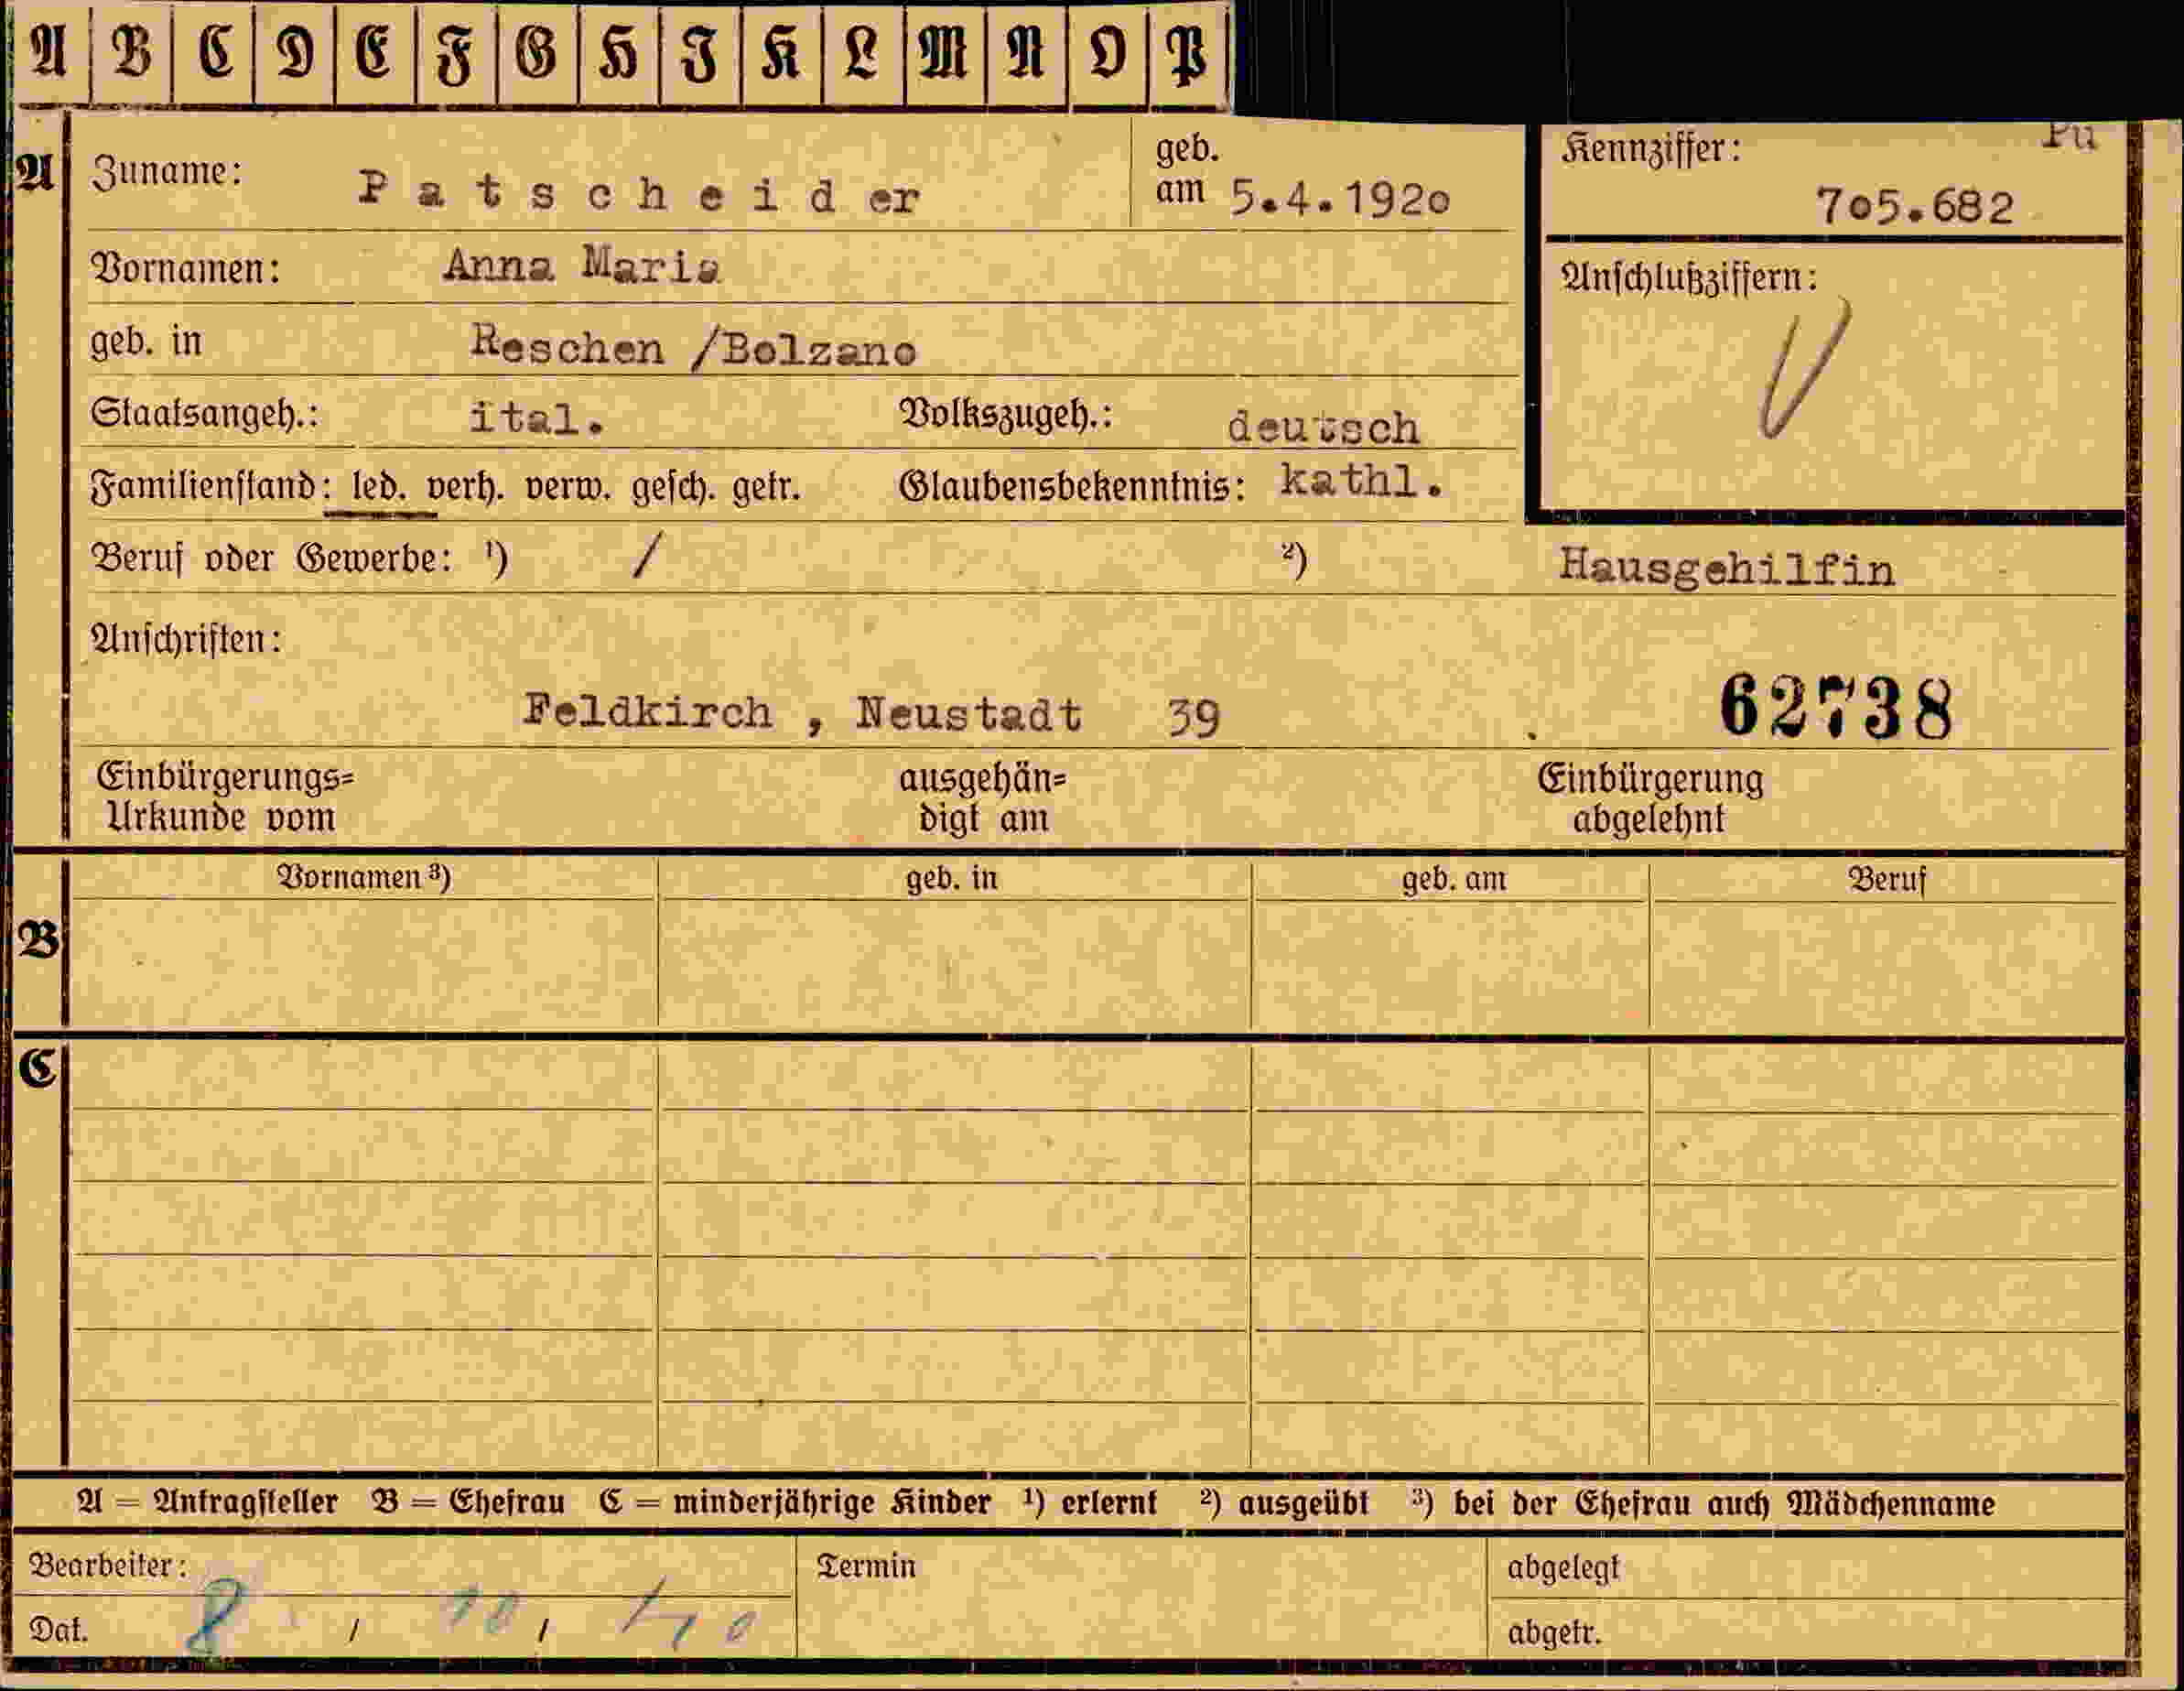 A B C D E F G H I K L M N O P
A Zuname: Patscheider geb. am 5.4.1920 Kennziffer: Pu 705.682
Vornamen: Anna Maria Anschlußziffern:
geb. in Reschen /Bolzano
Staatsangeh.: ital. Volkszugeh.: deutsch
Familienstand: led. verh. verw. gesch. getr. Glaubensbekenntnis: kathl.
Beruf oder Gewerbe: ¹) / ²) Hausgehilfin
Anschriften:
Feldkirch , Neustadt 39 62738
Einbürgerungs= ausgehän= Einbürgerung
Urkunde vom digt am abgelehnt
Vornamen ³) geb. in geb. am Beruf
B
C
A = Antragsteller B = Ehefrau C = minderjährige Kinder ¹) erlernt ²) ausgeübt ³) bei der Ehefrau auch Mädchenname
Bearbeiter: Termin abgelegt
Dat. 8 / 10 / 40 abgetr.